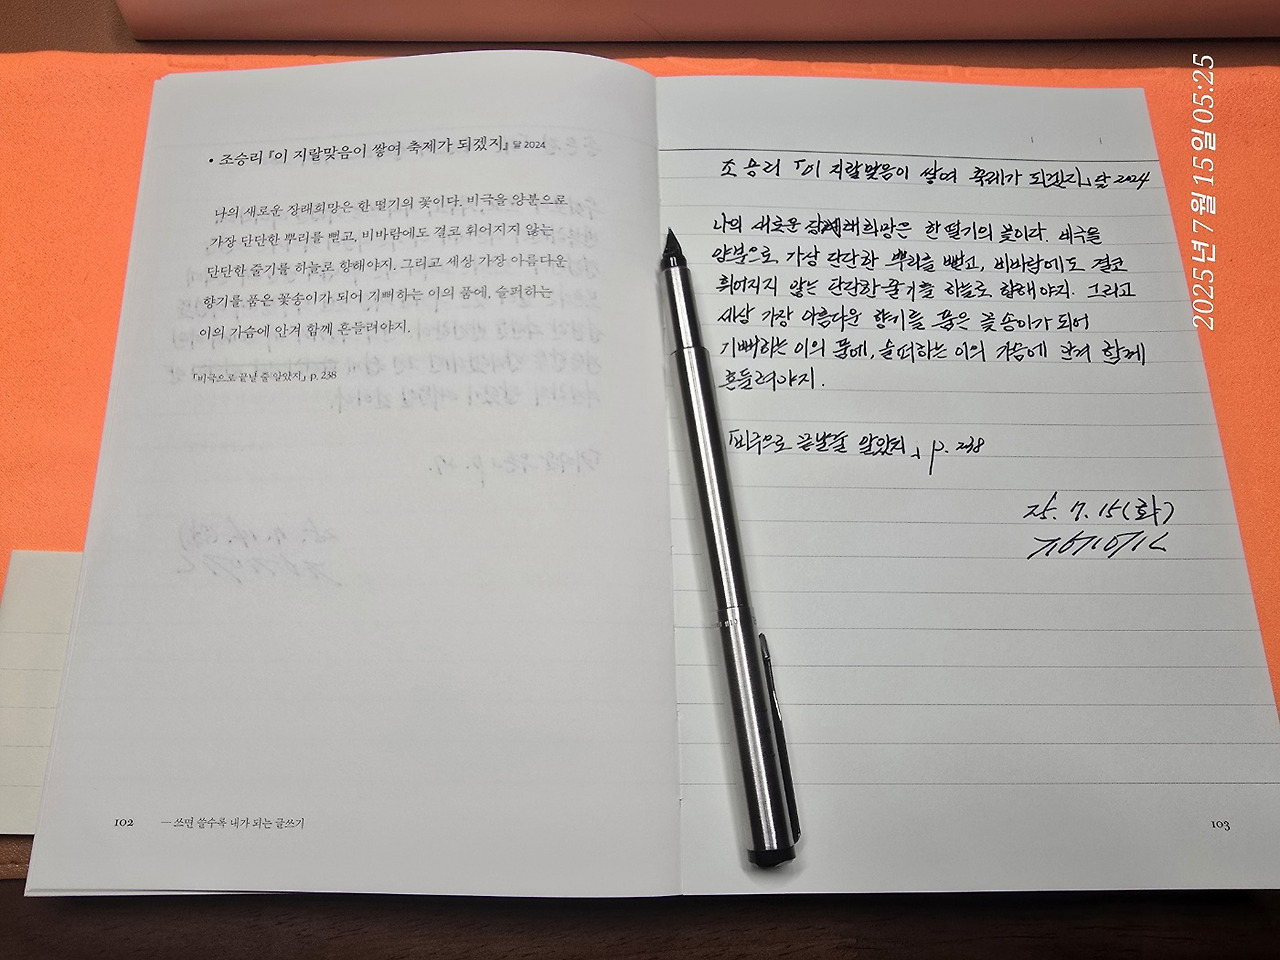 • 조승리 『이 지랄맞음이 쌓여 축제가 되겠지』 달 2024
나의 새로운 장래희망은 한 떨기의 꽃이다. 비극을 양분으로
가장 단단한 뿌리를 뻗고, 비바람에도 결코 휘어지지 않는
단단한 줄기를 하늘로 향해야지. 그리고 세상 가장 아름다운
향기를 품은 꽃송이가 되어 기뻐하는 이의 품에, 슬퍼하는
이의 가슴에 안겨 함께 흔들려야지.
「비극으로 끝날 줄 알았지」 p. 238
102 — 쓰면 쓸수록 내가 되는 글쓰기
조승리 『이 지랄맞음이 쌓여 축제가 되겠지』 달 2024
나의 새로운 장래희망은 한 떨기의 꽃이다. 비극을
양분으로 가장 단단한 뿌리를 뻗고, 비바람에도 결코
휘어지지 않는 단단한 줄기를 하늘로 향해야지. 그리고
세상 가장 아름다운 향기를 품은 꽃송이가 되어
기뻐하는 이의 품에, 슬퍼하는 이의 가슴에 안겨 함께
흔들려야지.
「비극으로 끝날줄 알았지」 p. 238
25. 7. 15 (화)
103
2025년 7월 15일 05:25